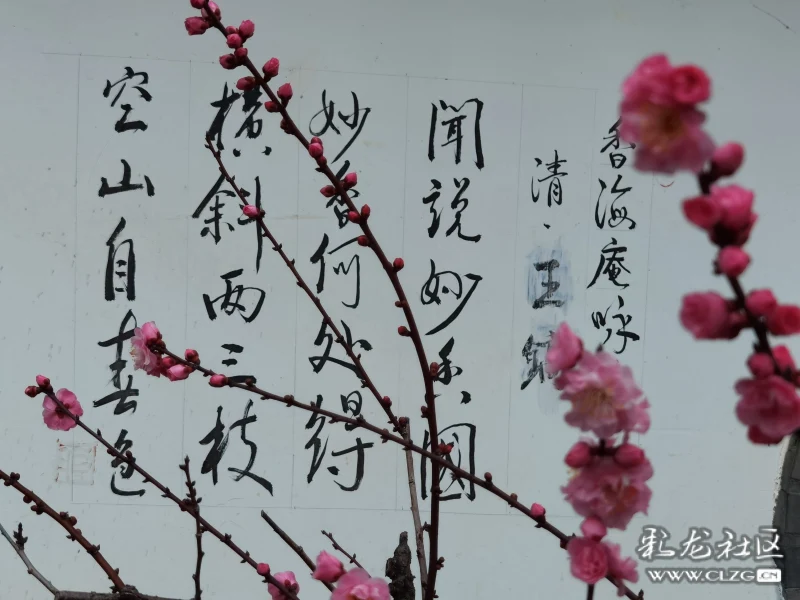 香海庵咏
清、王
闻说妙香国
妙香何处得
横斜两三枝
空山自春色
彩龙社区
WWW.CLZG.CN